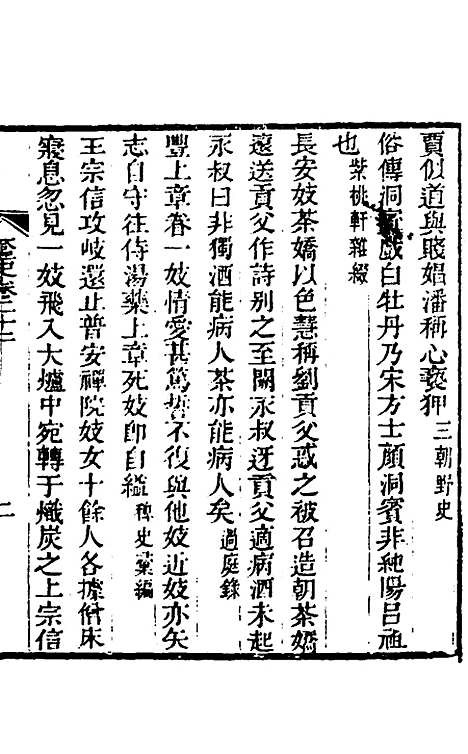 賈似道與賤娼潘稱心褻狎三朝野史
俗傳洞賓戲白牡丹乃宋方士顏洞賓非純陽呂祖
也紫桃軒雜綴
長安妓茶嬌以色慧稱劉貢父惑之被召造朝茶嬌
遠送貢父作詩别之至闕永叔迓貢父適病酒未起
永叔曰非獨酒能病人茶亦能病人矣過庭錄
豐上章眷一妓情愛甚篤誓不復與他妓近妓亦矢
志自守往侍湯藥上章死妓卽自縊稗史彙編
王宗信攻岐還止普安禪院妓女十餘人各擁僧床
寢息忽見一妓飛入大爐中宛轉于熾炭之上宗信
卷二十二
二